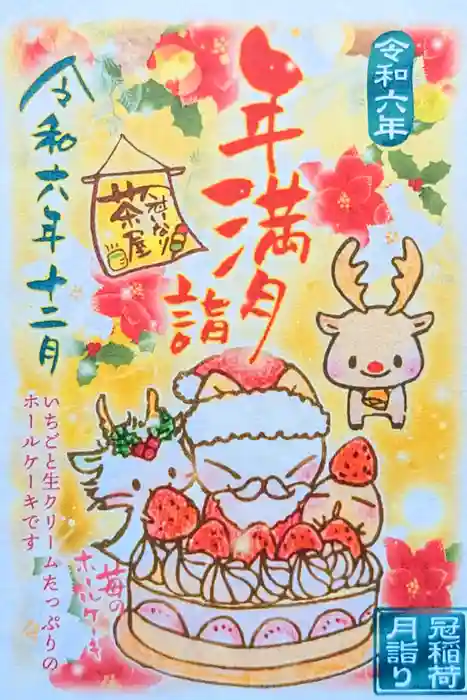 令和六年
年満月詣
令和六年十二月
冠いなり
茶屋
いちごと生クリームたっぷりの
ホールケーキです
苺の
ホールケーキ
冠稲荷
月詣り